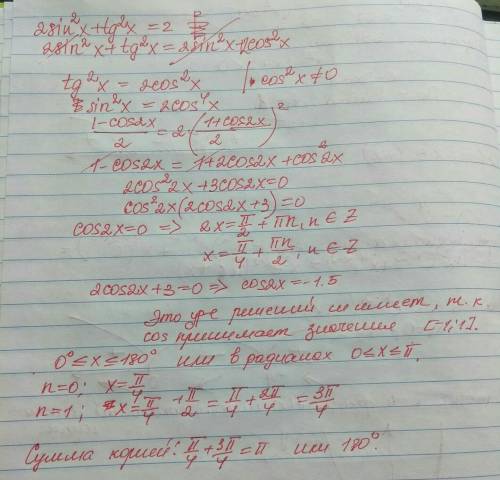 2sin²x+tg²x=2
2sin²x+tg²x=2sin²x+2cos²x
tg²x = 2cos²x |· cos²x≠0
sin²x = 2cos⁴x
(1-cos2x)/2 = 2·((1+cos2x)/2)²
1-cos2x = 1+2cos2x+cos²2x
2cos²2x+3cos2x=0
cos²2x(2cos2x+3)=0
cos2x=0 => 2x=π/2+πn, n∈Z
x=π/4+πn/2, n∈Z
2cos2x+3=0 => cos2x=-1.5
Это ур-е решений не имеет, т.к.
cos принимает значения [-1;1].
0°≤x≤180° или в радианах 0≤x≤π.
n=0; x=π/4
n=1; x=π/4+π/2=π/4+2π/4=3π/4
Сумма корней: π/4+3π/4=π или 180°.